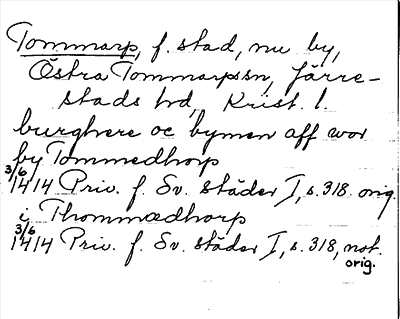 Tommarp, f. stad, nu by,
Östra Tommarpssn, Järre-
stads hd, Krist. l.
burghere oc bymen aff wor
by Tommedhorp
3/6 1414 Priv. f. Sv. städer I, s. 318. orig.
i Thommædhorp
3/6 1414 Priv. f. Sv. städer I, s. 318, not.
orig.